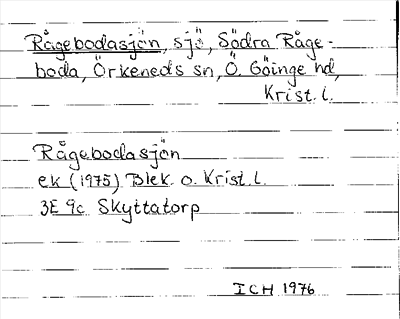 Rågebodasjön, sjö, Södra Råge-
boda, Örkeneds sn, Ö. Göinge hd,
Krist. l.
Rågebodasjön
ek (1975) Blek. o. Krist. l.
3E 9c Skyttatorp
ICH 1976